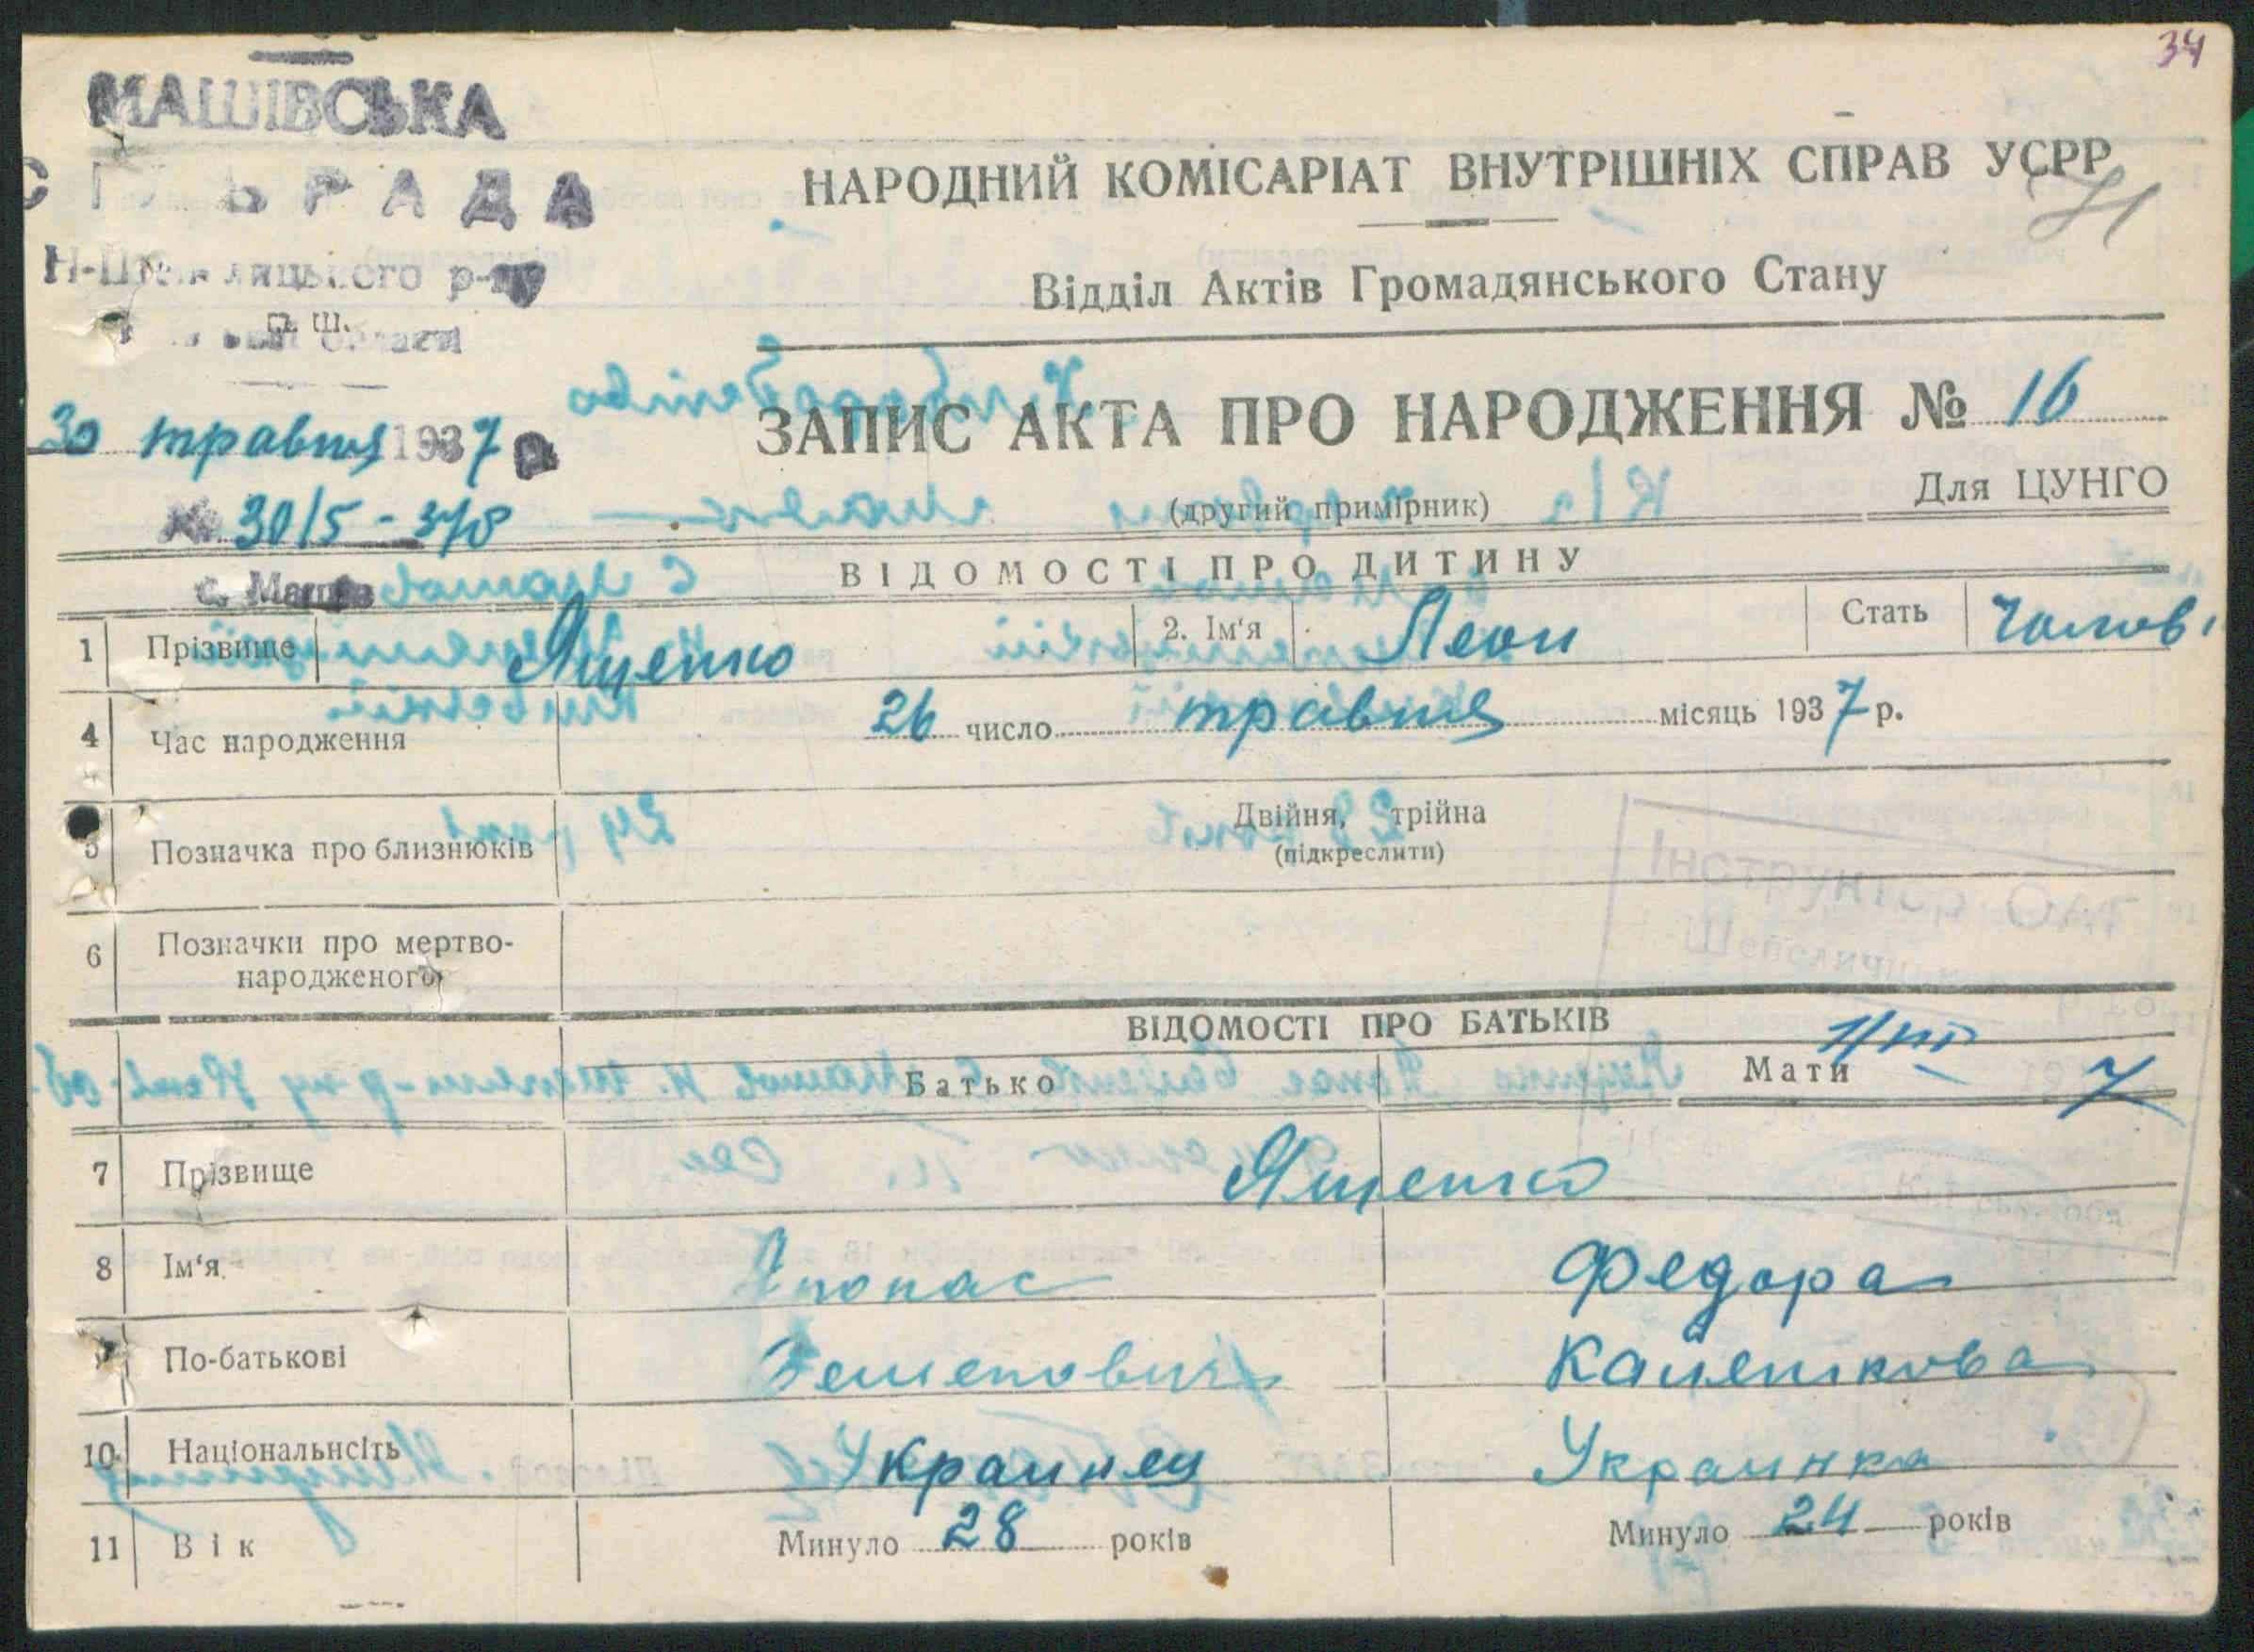 34
МАШІВСЬКА
РАДА
р-ну
п. ш.
області
НАРОДНИЙ КОМІСАРІАТ ВНУТРІШНІХ СПРАВ УСРР
Відділ Актів Громадянського Стану
30 травня 1937 р
ЗАПИС АКТА ПРО НАРОДЖЕННЯ № 16
(другий примірник)
Для ЦУНГО
№ 30/5-
с. Машів
ВІДОМОСТІ ПРО ДИТИНУ
1 Прізвище Ященко 2. Ім'я Леон Стать чолов.
4 Час народження 26 число травня місяць 1937 р.
5 Позначка про близнюків Двійня, трійна
(підкреслити)
6 Позначки про мертво-
народженого
ВІДОМОСТІ ПРО БАТЬКІВ
Батько Мати
7 Прізвище Ященко
8 Ім'я Опонас Федора
По-батькові
10 Національнсіть Украинец Украинка
11 Вік Минуло 28 років Минуло 24 років